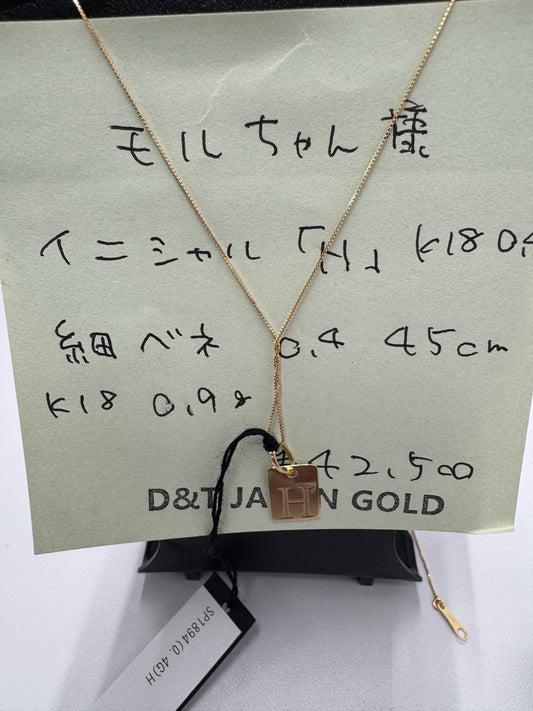 モルちゃん様
イニシャル「H」 K18 0.4
細ベネ 0.4 45cm
K18 0.9g
42,500
D&T JA N GOLD
H
SP1894(0.4G)H